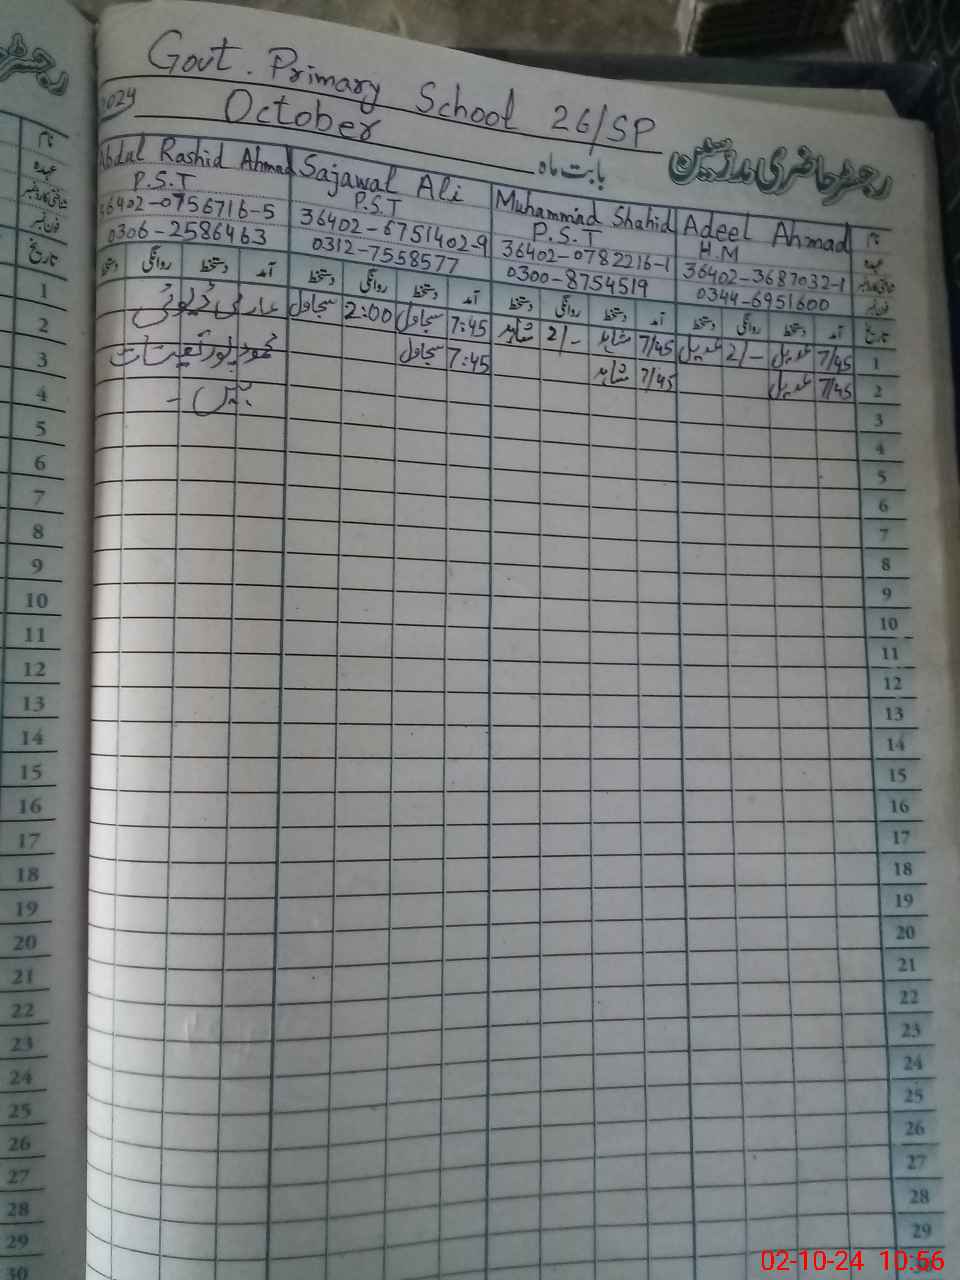 Govt. Primary School 26/SP
2024 October
بابت ماہ رجسٹر حاضری مدرسین
Abdul Rashid Ahmad Sajawal Ali Muhammad Shahid Adeel Ahmad نام
P.S.T P.S.T P.S.T H.M عہدہ
36402-0756716-5 36402-6751402-9 36402-0782216-1 36402-3687032-1 شناختی کارڈ نمبر
0306-2586463 0312-7558577 0300-8754519 0344-6951600 فون نمبر
دستخط روانگی دستخط آمد دستخط روانگی دستخط آمد دستخط روانگی دستخط آمد دستخط روانگی دستخط آمد تاریخ
عارضی ڈیوٹی سجاول 2:00 سجاول 7:45 شاہد 2/- شاہد 7/45 عدیل 2/- عدیل 7/45 1
محمود پور تعینات سجاول 7:45 شاہد 7/45 عدیل 7/45 2
ہیں - 3
4
5
6
7
8
9
10
11
12
13
14
15
16
17
18
19
20
21
22
23
24
25
26
27
28
29
رجسٹر
نام
عہدہ
شناختی کارڈ نمبر
فون نمبر
تاریخ
1
2
3
4
5
6
7
8
9
10
11
12
13
14
15
16
17
18
19
20
21
22
23
24
25
26
27
28
29
30
02-10-24 10:56